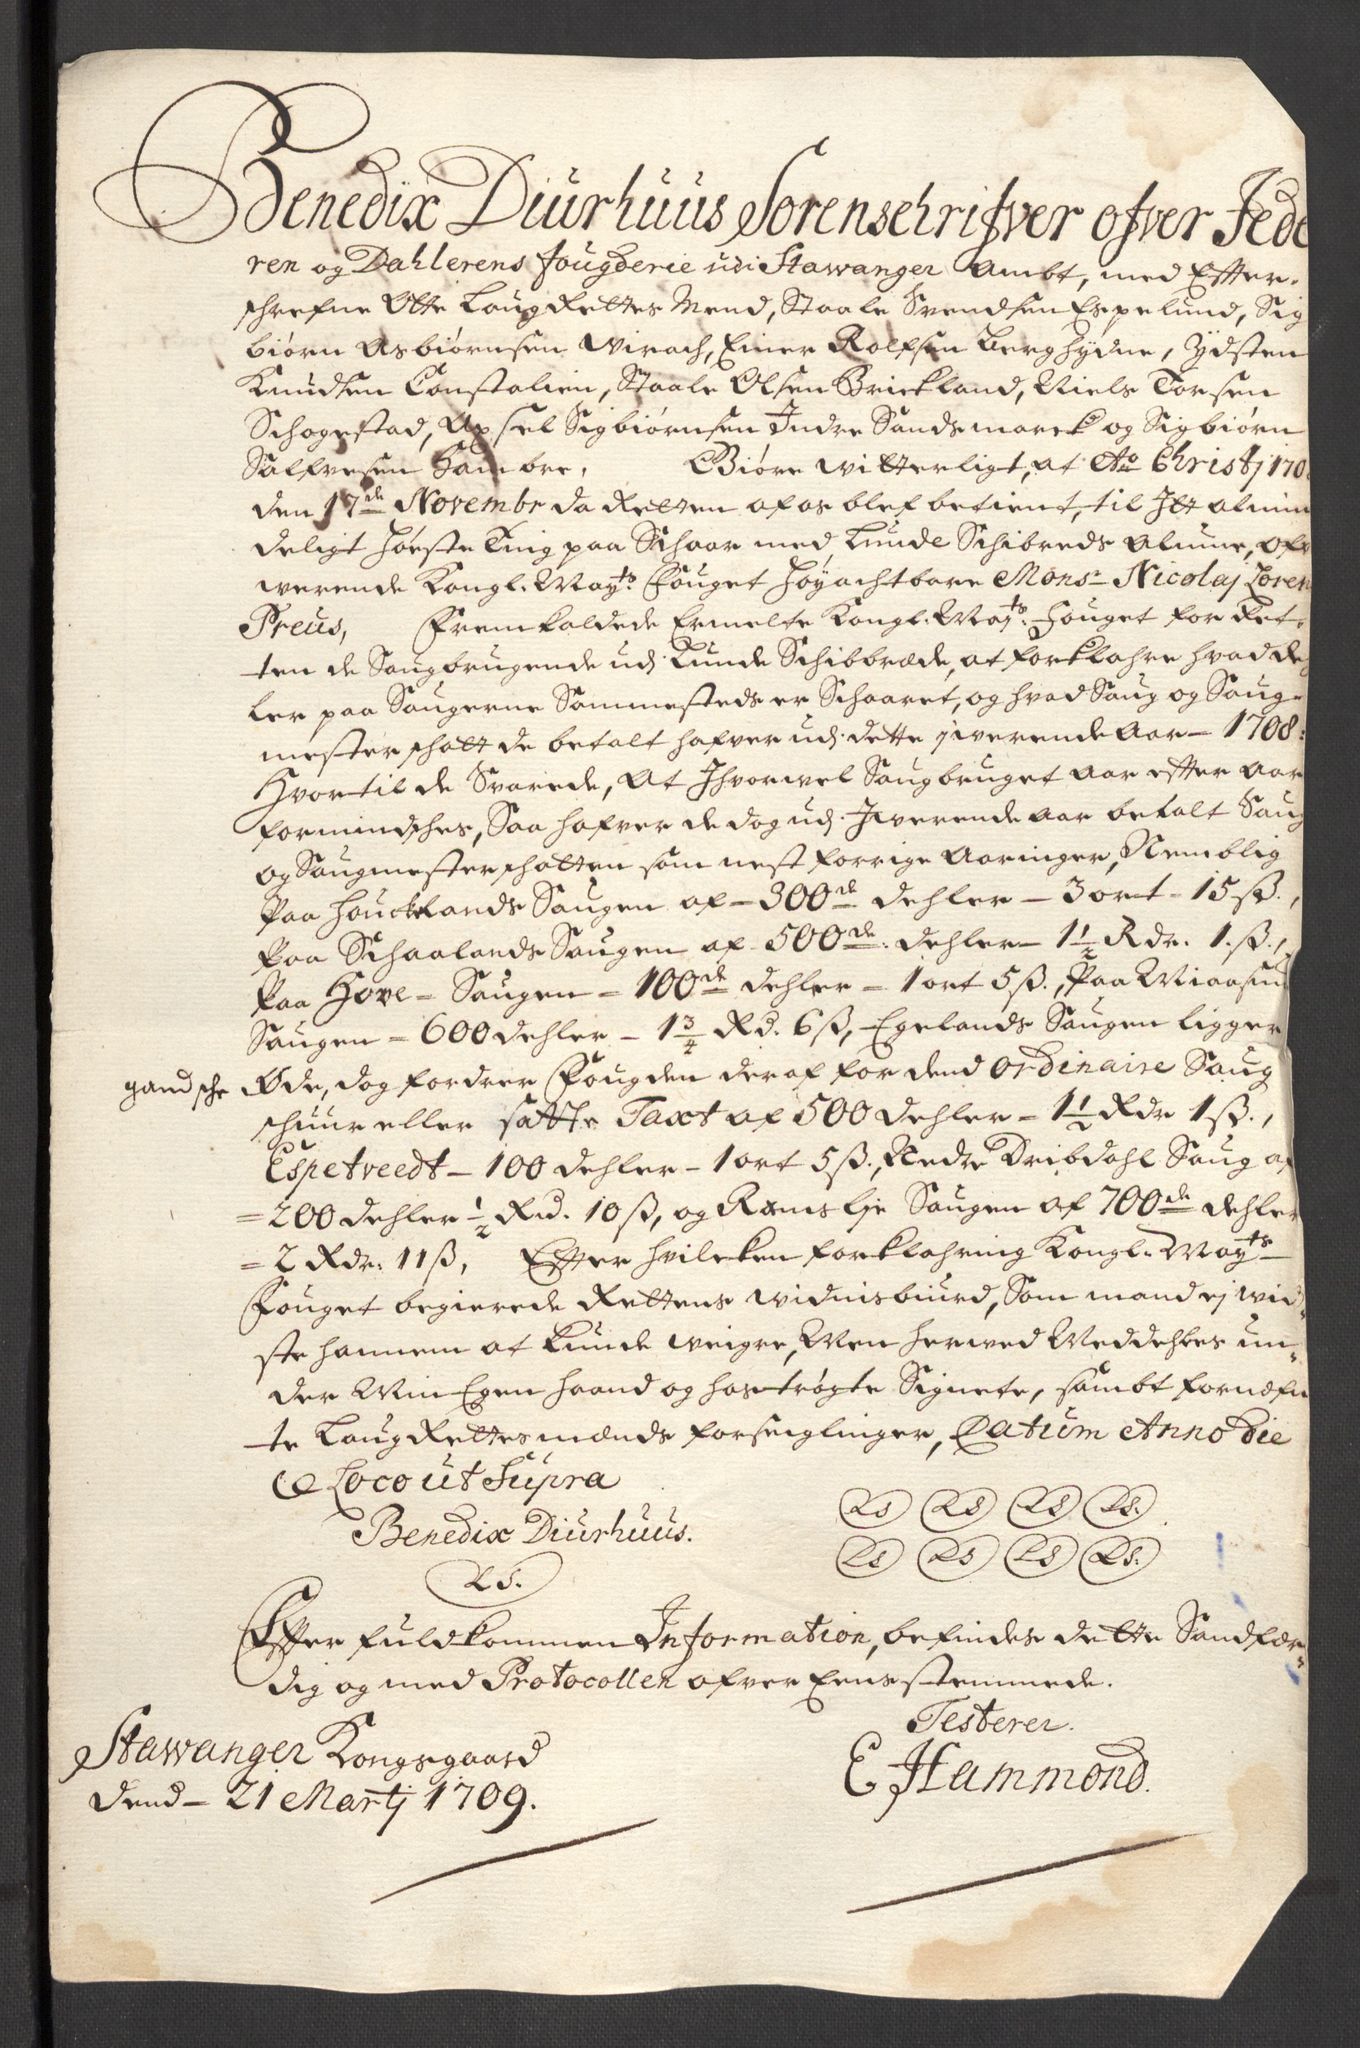 Benedix Diurhuus Sorenschrifver ofver Jede
ren og Dahlerens fougderie udi Stawanger Ambt, med Efter-
schrefne Otte Laug Rettes Mend, Staale Svendsen Espelund, Sig
biørn Asbiørnsen Wirach, Einer Rolfsen Berghydne,
Knudsen Constalien, Staale Olsen Brickland, Niels Torsen
Schogestad, Axsel Sigbiørnsen Indre Sandsmarck og Sigbiørn
Salfvesen Hambre, Giøre witterligt, at Ao Christj 170
den 17de Novembr da Retten af os blef betient, til Itt almin
deligt Høste Ting paa Schaar med Lunde Schibreds Almue, Ofr
werende Kongl. Mayts Fouget Høyachtbare Monsr Nicolaj Loren
Preus, Fremkaldede Ermelte Kongl. Mayts Fouget for Ret-
ten de Saugbrugende udj Lunde Schibbræde, at forklahre hvad De
ler paa Saugerne Sammesteds er Schaaret, og hvad Saug og Saug-
mester schatt de betalt hafver udj dette jwerende Aar - 1708:
Hvortil de Svarede, At Ihvorwel Saugbruget Aar efter Aar
formindsches, Saa hafver de dog udj Jwerende Aar betalt Saug
og Saugmesterschatten som nest forrige Aaringer, Nemblig
Paa Houcklands Saugen af - 300de dehler - 3 ort - 15 ß.,
Paa Schaalands Saugen af 500de. dehler - 1½ Rdr. 1. ß.,
Paa Hove - Saugen - 100de dehler - 1 ort 5 ß., Paa Miaasun
Saugen - 600 dehler - 1¾ Rd. 6 ß, Egelands Saugen ligger
gandsche Øde, dog fordrer Fougden deraf for dend Ordinaire Saug
schuur eller satte Taxt af 500 dehler - 1½ Rdr 1 ß.,
Espetveedt - 100 dehler - 1 ort 5 ß., Nedre Dribdahl Saug af
= 200 dehler ½ Rd. 10 ß, og Ramslje Saugen af 700de dehler
= 2 Rdr. 11 ß, Efter hvilcken forklahring Kongl. Mayts
Fouget begierede Rettens widnisbiurd, Som mand ej wid-
ste hannem at kunde weigre, Men herwed Meddehles un-
der Min Egen haand og hostrøgte Signete, sambt fornefn
te Laug Rettesmænds forseiglinger, Datum Anno Die
& Loco ut Supra
Benedix Diurhuus.
LS.
LS LS LS LS.
LS LS LS LS.
Efter fuldkommen Information, befindes dette Sandfær-
dig og med Protocollen ofver Eensstemmede.
Testerer.
E Hammond.
Stawanger Kongsgaard
Dend - 21 Martj 1709.